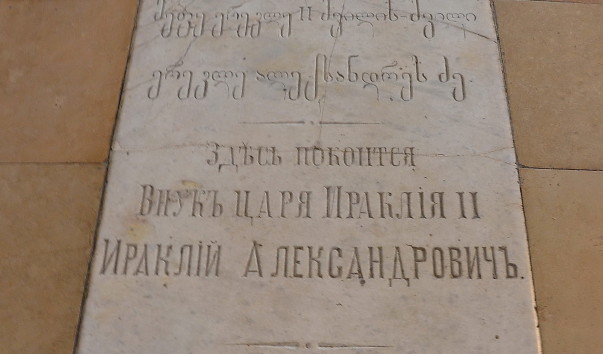 მეფე ერეკლე II ძვილის-ძვილი
ერეკლე ალექსანდრეს ძე.
Здѣсь покоится
Внукъ царя Ираклія II
Ираклій Александровичъ.